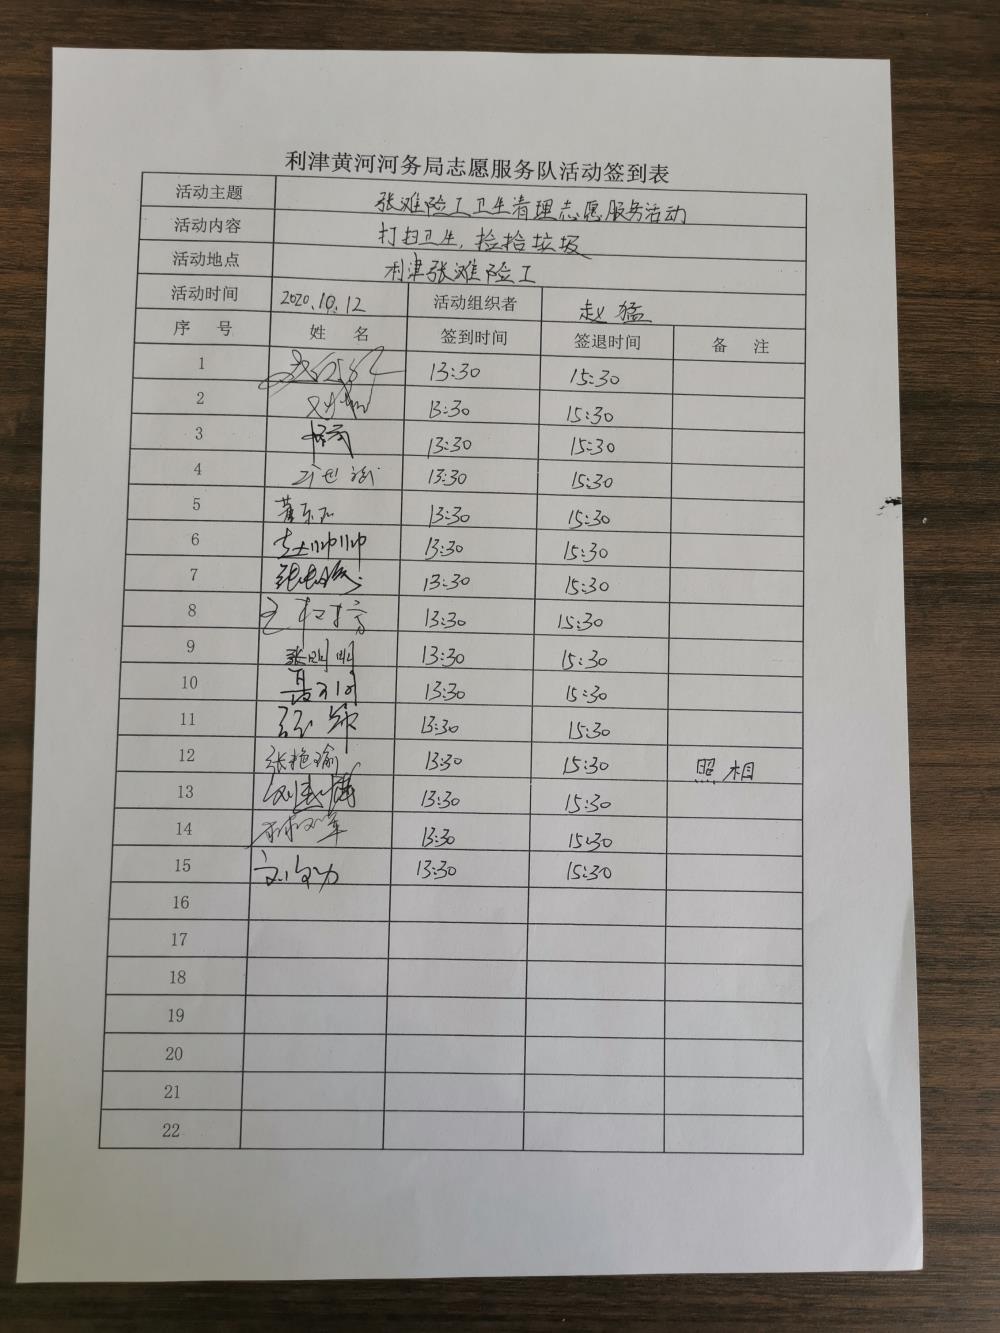 利津黄河河务局志愿服务队活动签到表
活动主题 张滩险工卫生清理志愿服务活动
活动内容 打扫卫生，捡拾垃圾
活动地点 利津张滩险工
活动时间 2020.10.12 活动组织者 赵猛
序 号 姓 名 签到时间 签退时间 备 注
1 13:30 15:30
2 13:30 15:30
3 13:30 15:30
4 13:30 15:30
5 13:30 15:30
6 13:30 15:30
7 13:30 15:30
8 13:30 15:30
9 张明明 13:30 15:30
10 13:30 15:30
11 13:30 15:30
12 张艳瑜 13:30 15:30 照相
13 13:30 15:30
14 13:30 15:30
15 13:30 15:30
16
17
18
19
20
21
22